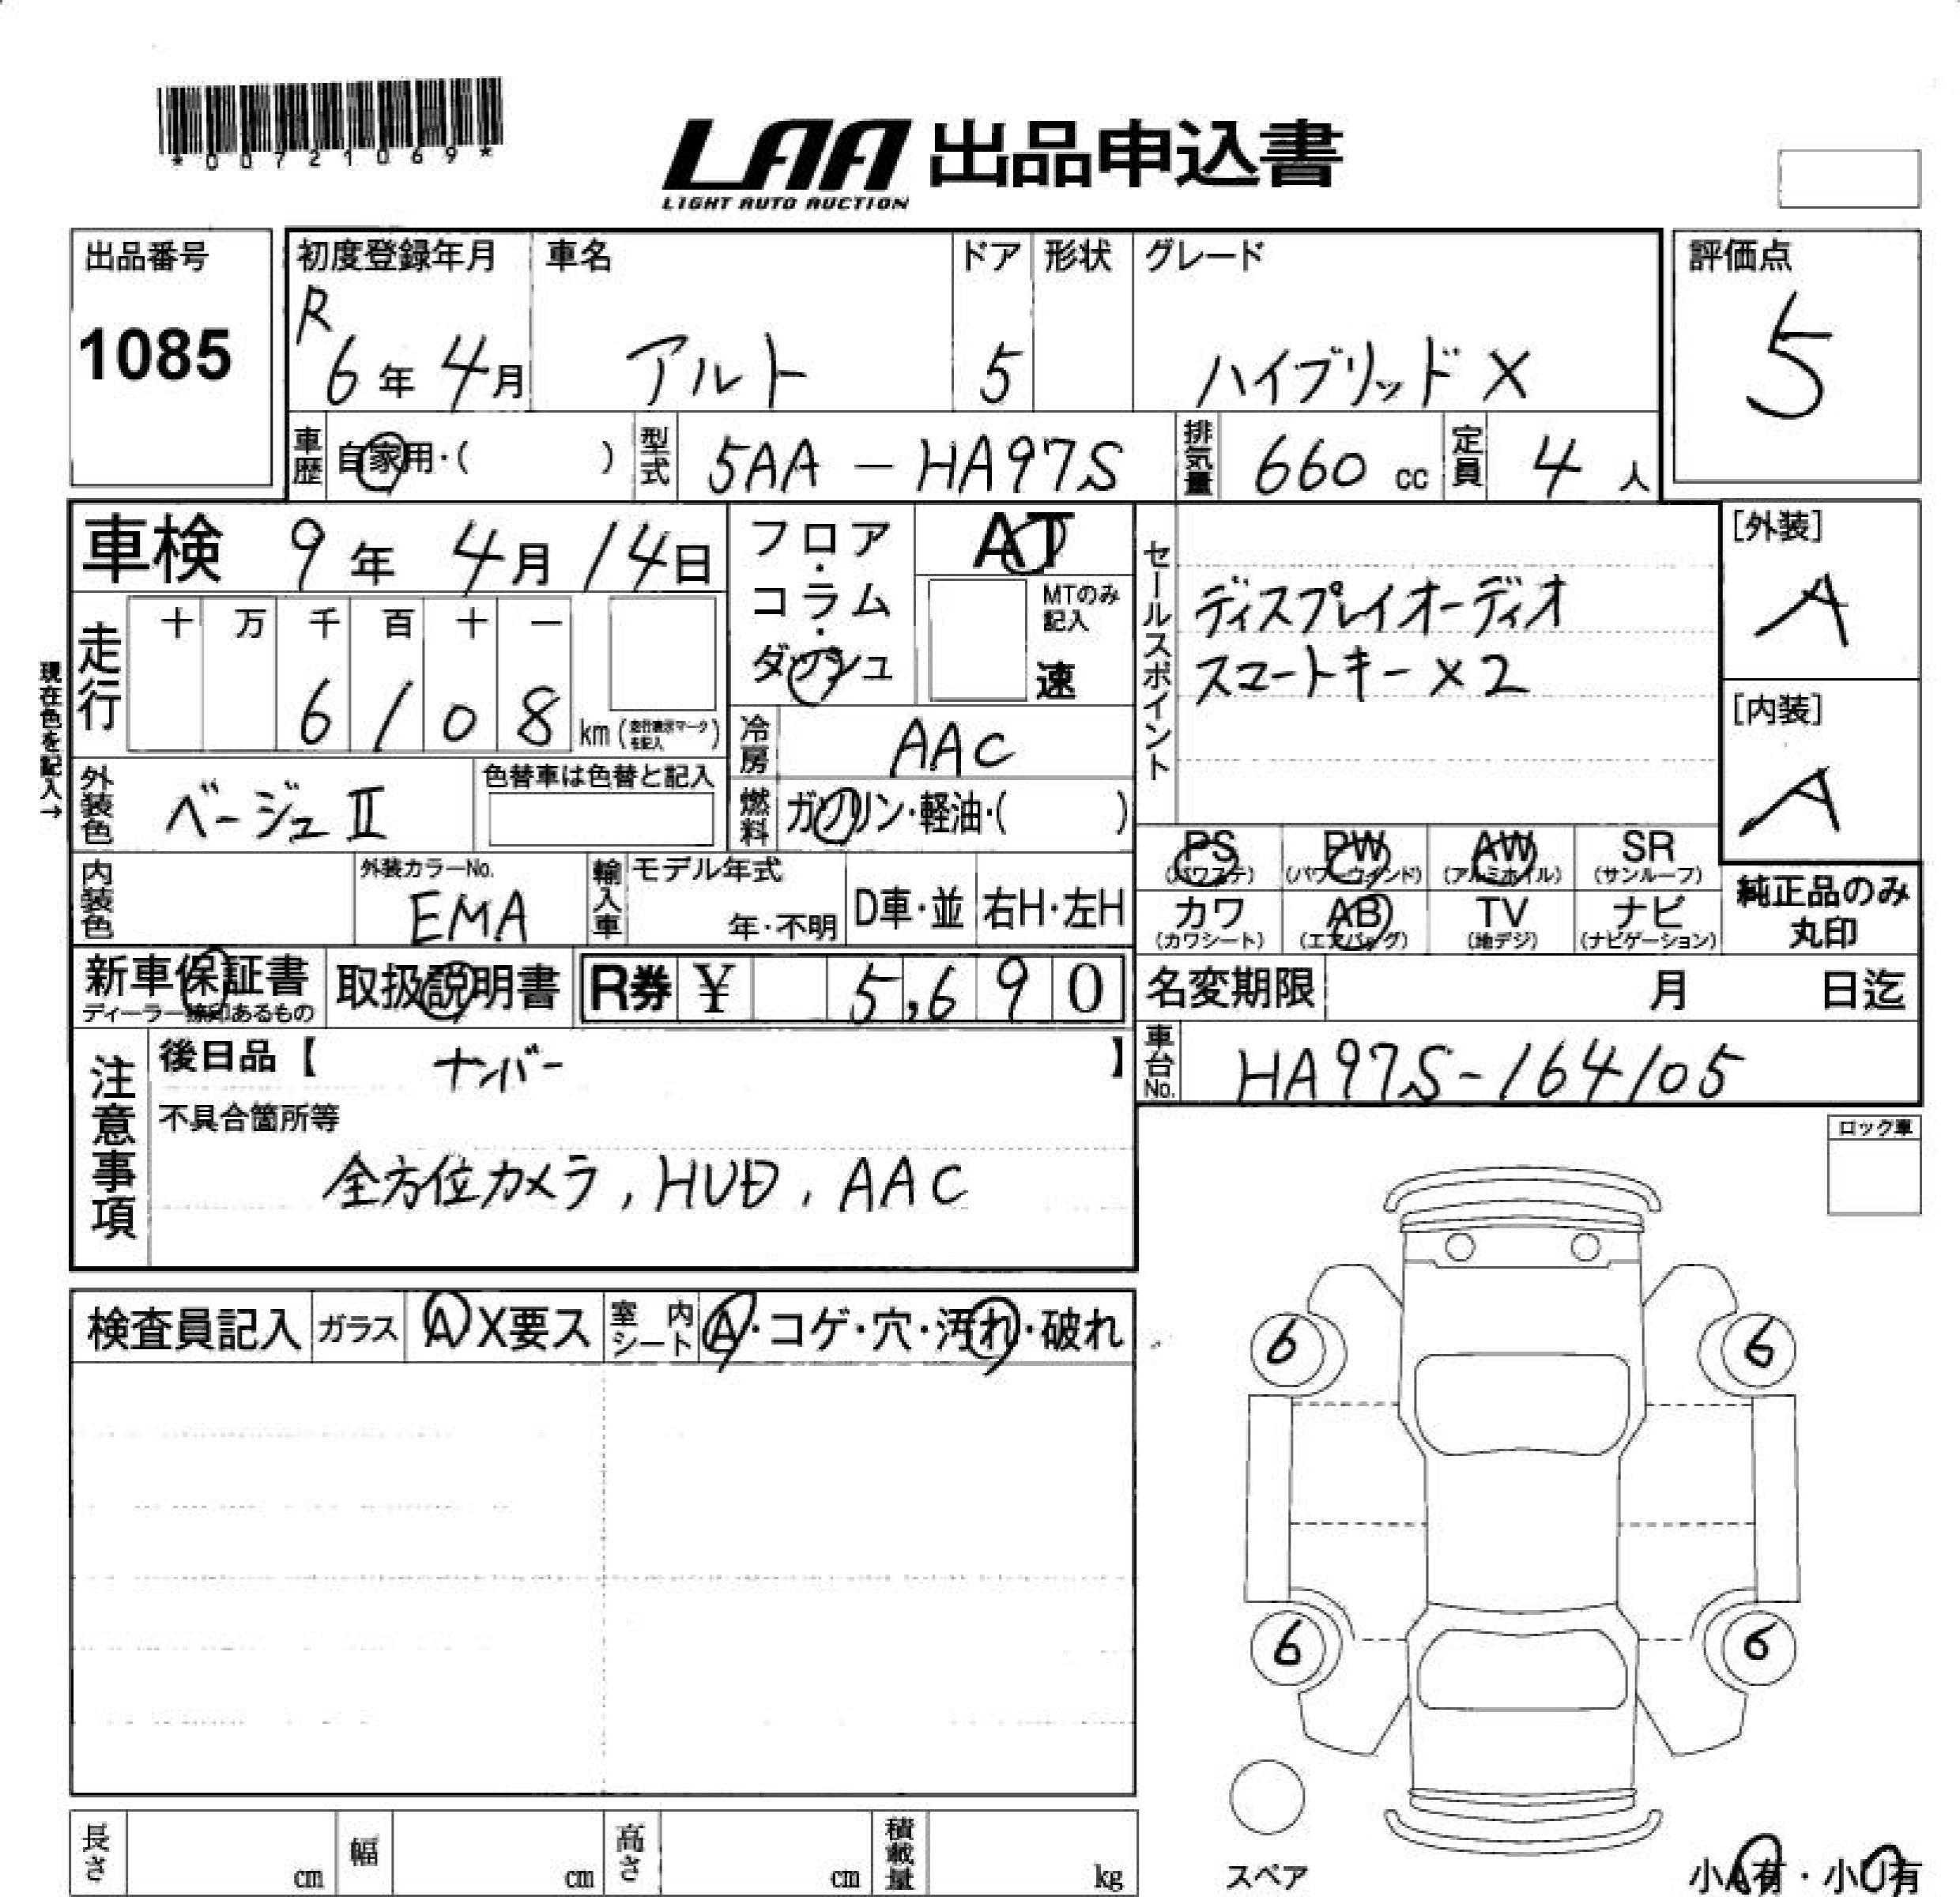 *00721069*
LAA 出品申込書
LIGHT AUTO AUCTION
出品番号
1085
初度登録年月
R
6年 4月
車名
アルト
ドア
5
形状
グレード
ハイブリッド X
評価点
5
車歴 自家用・( )
型式 5AA - HA97S
排気量 660 cc
定員 4 人
車検 9年 4月 14日
フロア・コラム・ダッシュ
AT
MTのみ記入
速
セールスポイント
ディスプレイオーディオ
スマートキー×2
[外装]
A
[内装]
A
現在色を記入→
走行
十 万 千 百 十 一
6 1 0 8 km (走行表示マークを記入)
冷房 AAC
外装色 ベージュⅡ
色替車は色替と記入
燃料 ガソリン・軽油・( )
PS (パワステ)
PW (パワーウィンド)
AW (アルミホイル)
SR (サンルーフ)
カワ (カワシート)
AB (エアバッグ)
TV (地デジ)
ナビ (ナビゲーション)
純正品のみ丸印
内装色
外装カラーNo.
EMA
輸入車
モデル年式
年・不明
D車・並
右H・左H
新車保証書
取扱説明書
R券 ¥ 5,690
名変期限 月 日迄
車台No. HA97S-164105
注意事項
後日品【 ナンバー 】
不具合箇所等
全方位カメラ, HUD, AAC
ロック車
検査員記入
ガラス A X要ス
室内シート A・コゲ・穴・汚れ・破れ
6 6
6 6
スペア
小A有・小U有
長さ cm
幅 cm
高さ cm
積載量 kg